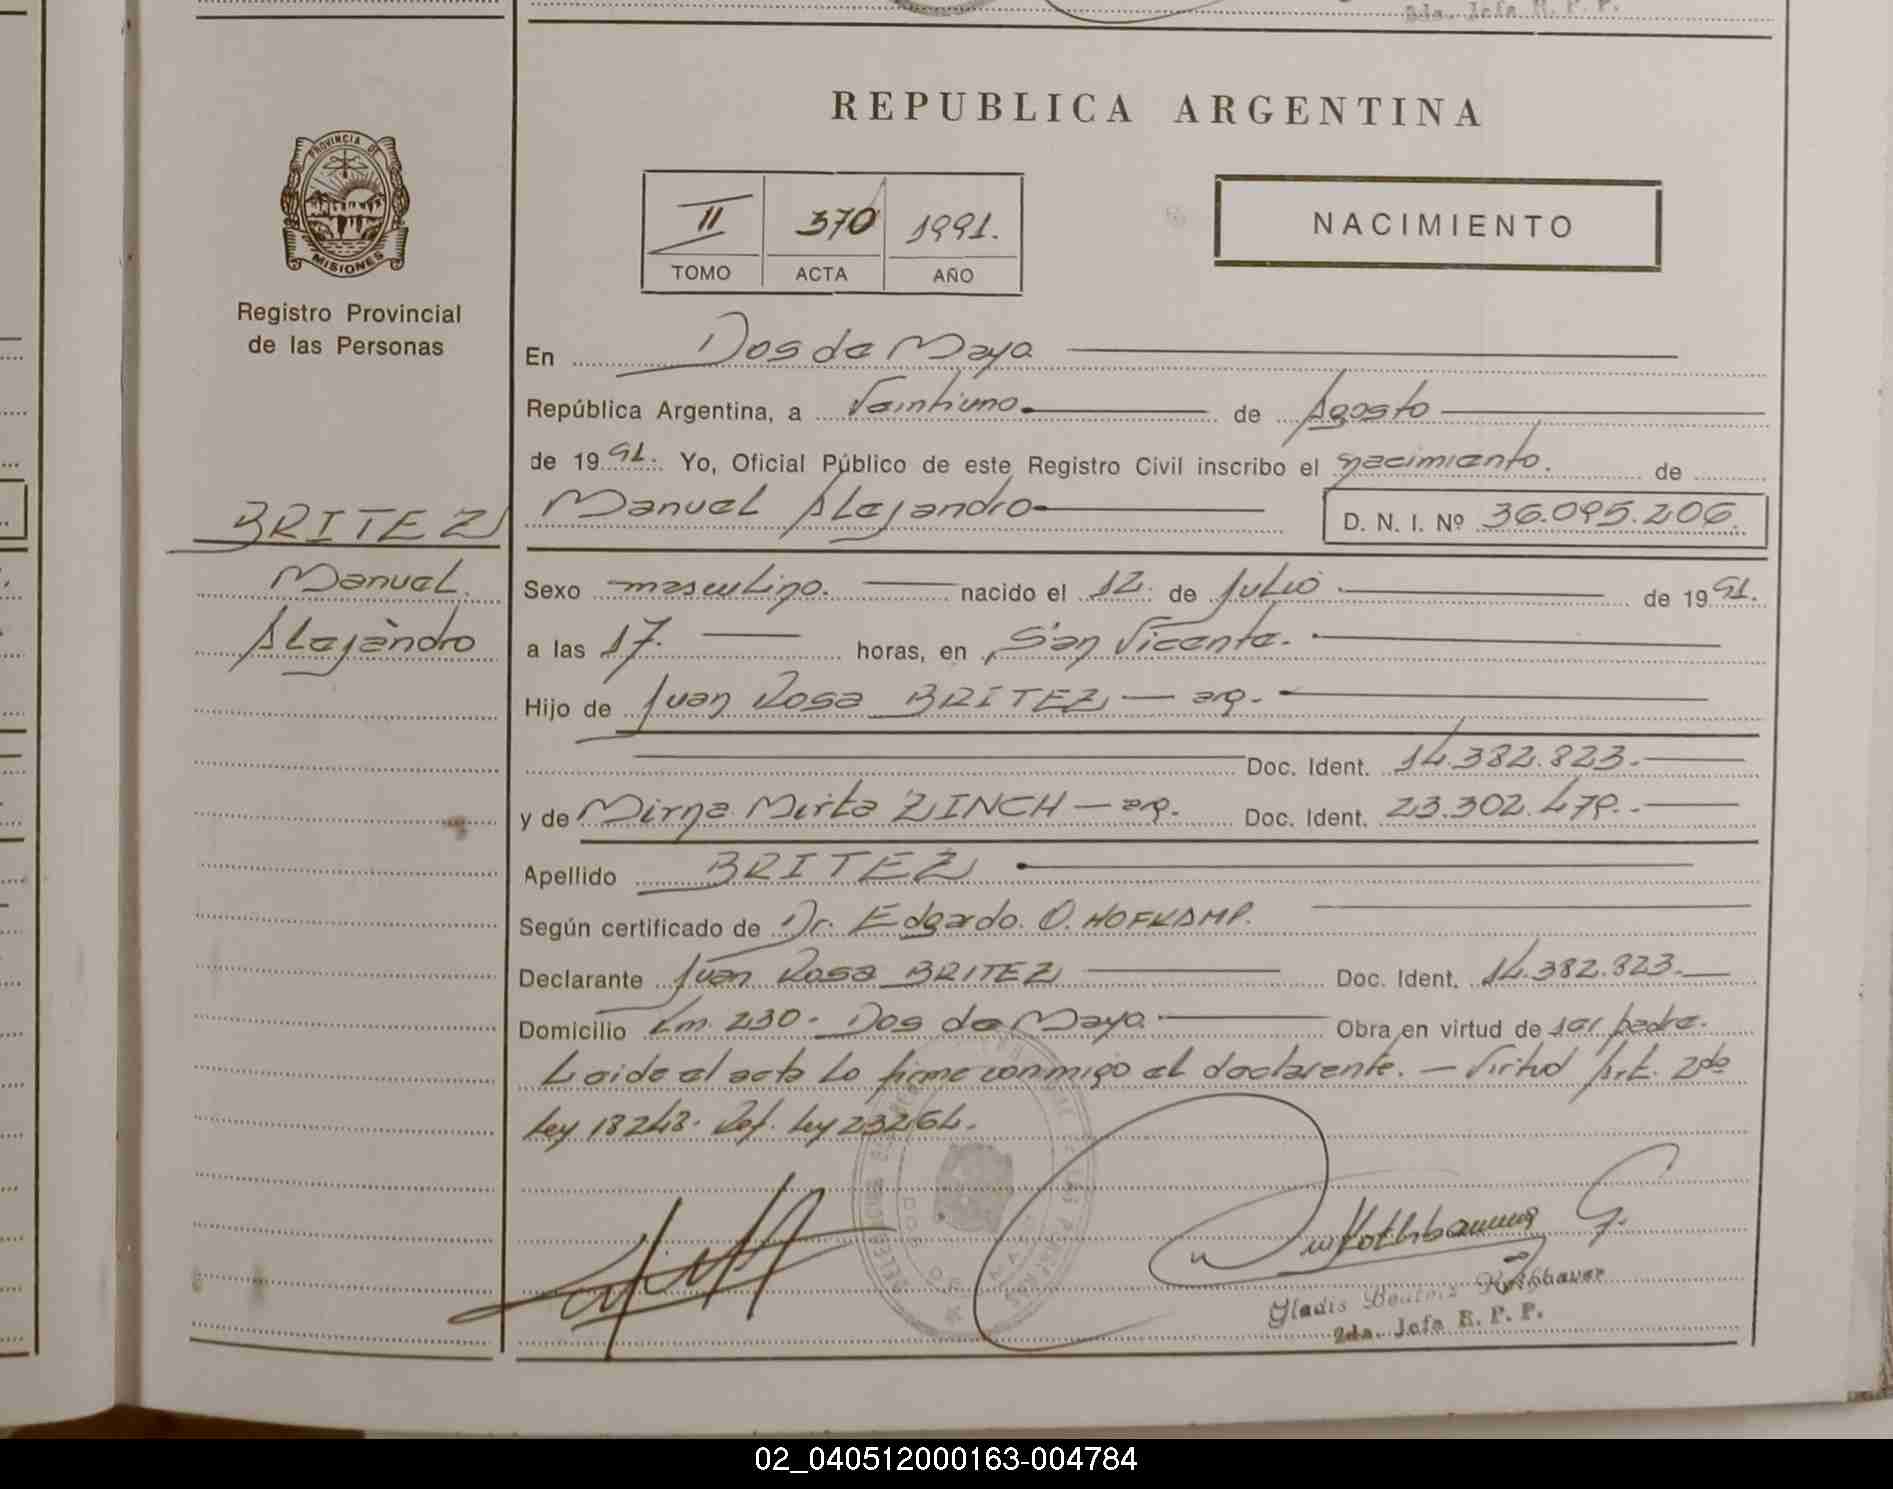 2da. Jefa R. P. P.
REPUBLICA ARGENTINA
PROVINCIA DE
MISIONES
II 370 1991.
TOMO ACTA AÑO
NACIMIENTO
Registro Provincial
de las Personas
En Dos de Mayo
República Argentina, a Veintiuno de Agosto
de 1991. Yo, Oficial Público de este Registro Civil inscribo el nacimiento. de
BRITEZ
Manuel
Alejandro
Manuel Alejandro D. N. I. Nº 36.095.206.
Sexo masculino. nacido el 12 de Julio de 1991.
a las 17. horas, en San Vicente.
Hijo de Juan Rosa BRITEZ — arg.
Doc. Ident. 14.382.823.
y de Mirna Mirta ZINCH — arg. Doc. Ident. 23.302.479.
Apellido BRITEZ
Según certificado de Dr. Edgardo O. HOFKAMP.
Declarante Juan Rosa BRITEZ Doc. Ident. 14.382.823.
Domicilio Km. 230 - Dos de Mayo Obra en virtud de ser padre.
Leida el acta lo firma conmigo el declarante. — Virtud Art. 2do
Ley 18248. Ref. Ley 23264.
Gladis Beatriz Rothbauer
2da. Jefa R. P. P.
02_040512000163-004784